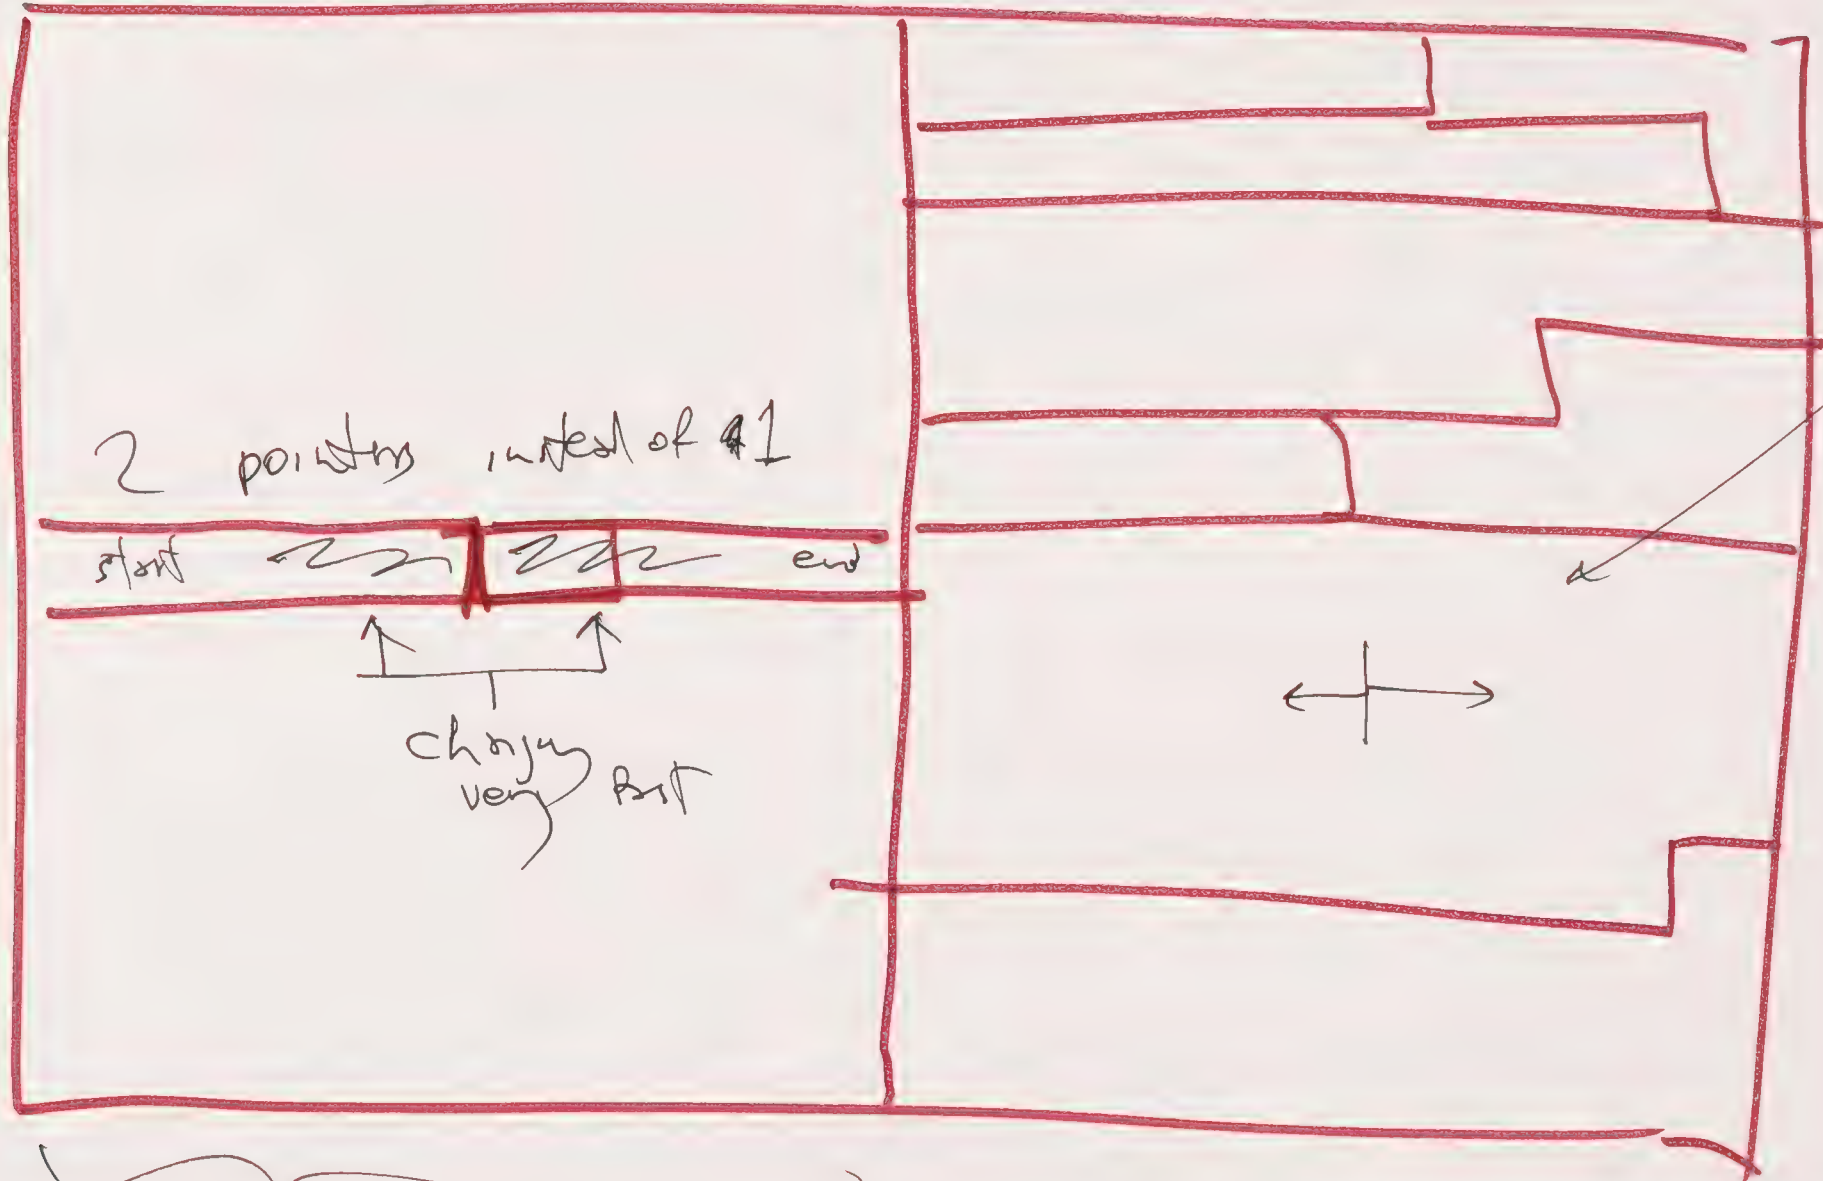 2 pointers instead of 1
start end
changing
very fast